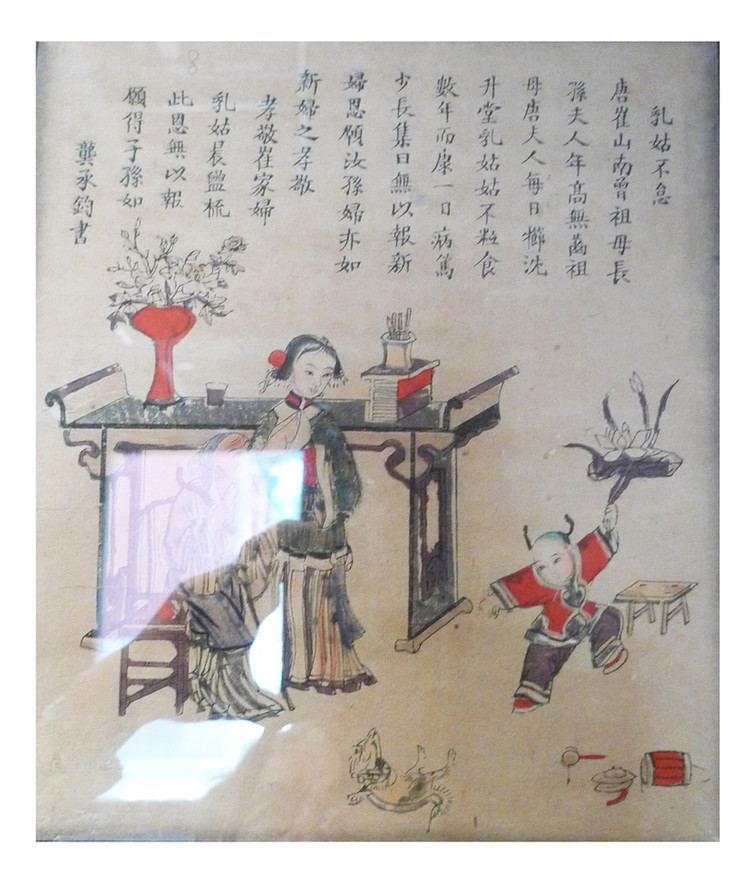 乳姑不怠
唐崔山南曾祖母長
孫夫人年高無齒祖
母唐夫人每日櫛洗
升堂乳姑姑不粒食
數年而康一日病篤
少長集曰無以報新
婦恩願汝孫婦亦如
新婦之孝敬
孝敬崔家婦
乳姑晨盥梳
此恩無以報
願得子孫如
龔承鈞書